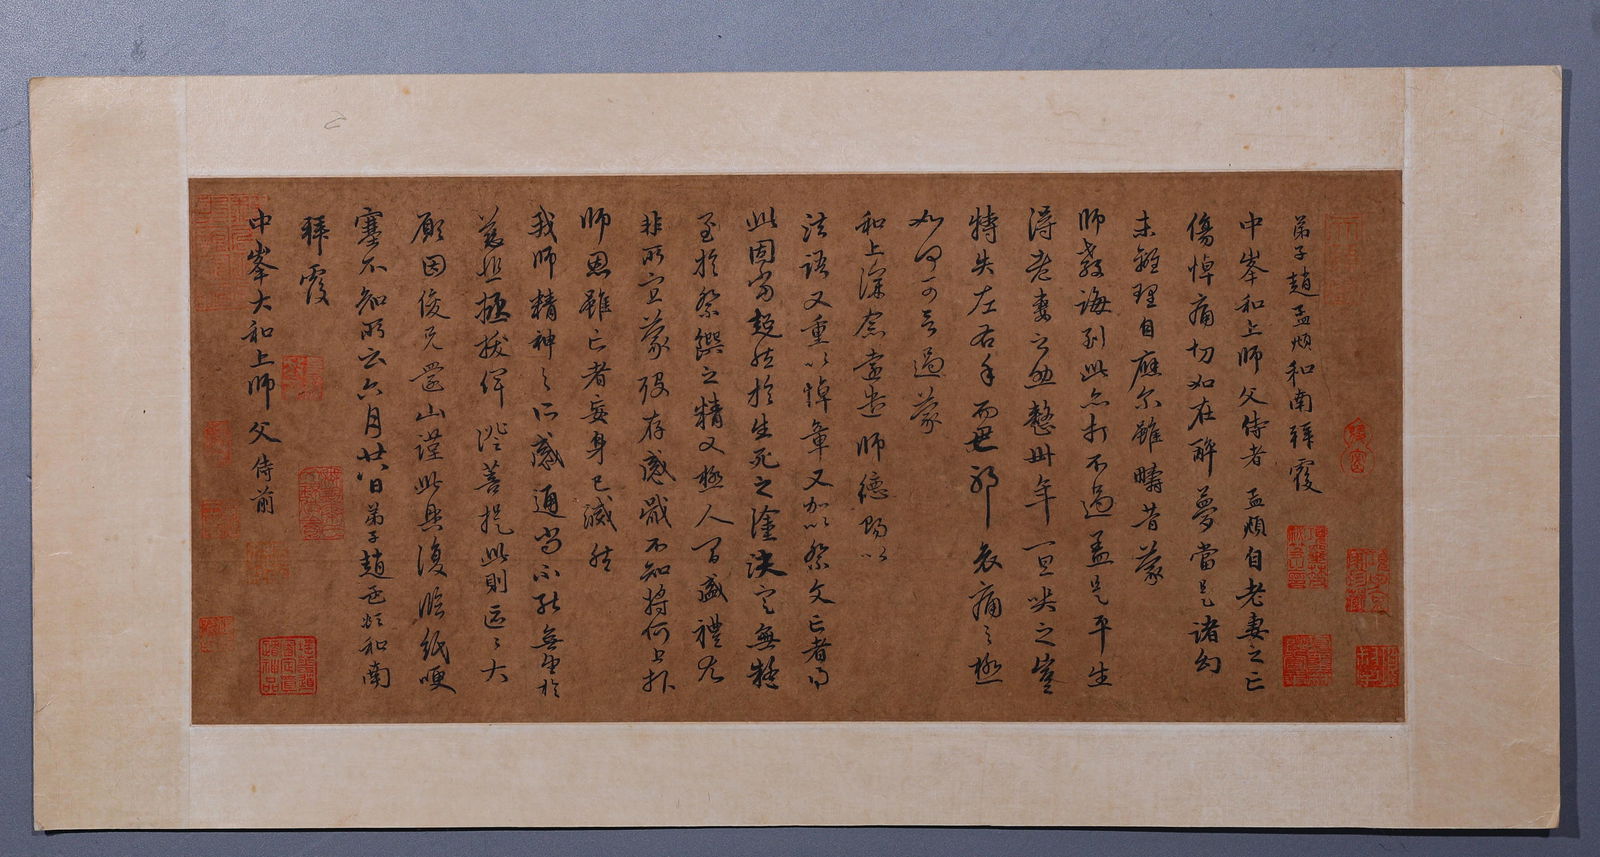 弟子趙孟頫和南拜覆
中峯和上師父侍者孟頫自老妻之亡
傷悼痛切如在醉夢當是諸幻
未離理自應尔雖疇昔蒙
師教誨到此亦打不過盖是平生
得老妻之助整卅年一旦哭之豈
特失左右手而已耶哀痛之極
如何可言過蒙
和上深念遠遣師德賜以
法語又重以悼章又加以祭文亡者得
此固當超然於生死之塗決定無疑
至於祭饌之精又極人間盛禮尤
非所宜蒙殁存感戢不知將何上報
師恩雖亡者妄身已滅然
我師精神之所感通尚不能無望於
慈悲拯拔俾證菩提此則區區大
願因俊兄還山謹此具復臨紙哽
塞不知所云六月廿八日弟子趙孟頫和南
拜覆
中峯大和上師父侍前